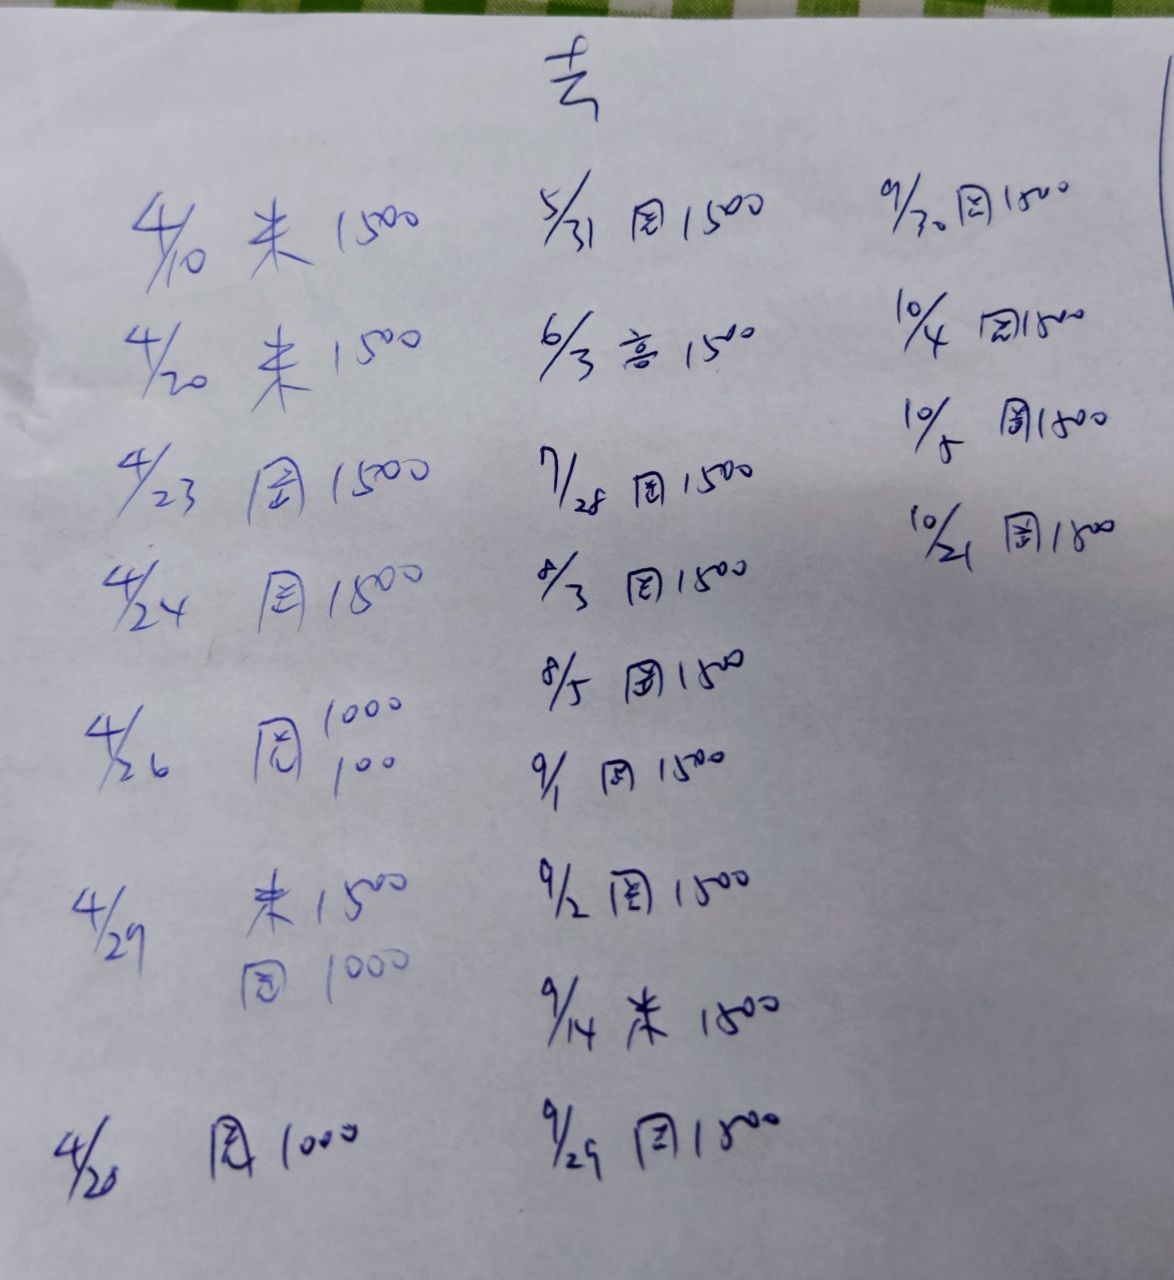 4/10 朱 1500
4/20 朱 1500
4/23 国 1500
4/24 国 1500
4/26 国 1000
100
4/29 朱 1500
国 1000
4/20 国 1000
5/31 国 1500
6/3 1500
7/28 国 1500
8/3 国 1500
8/5 国 1500
9/1 国 1500
9/2 国 1500
9/14 朱 1500
9/29 国 1500
9/30 国 1500
10/4 国 1500
10/5 国 1500
10/21 国 1500